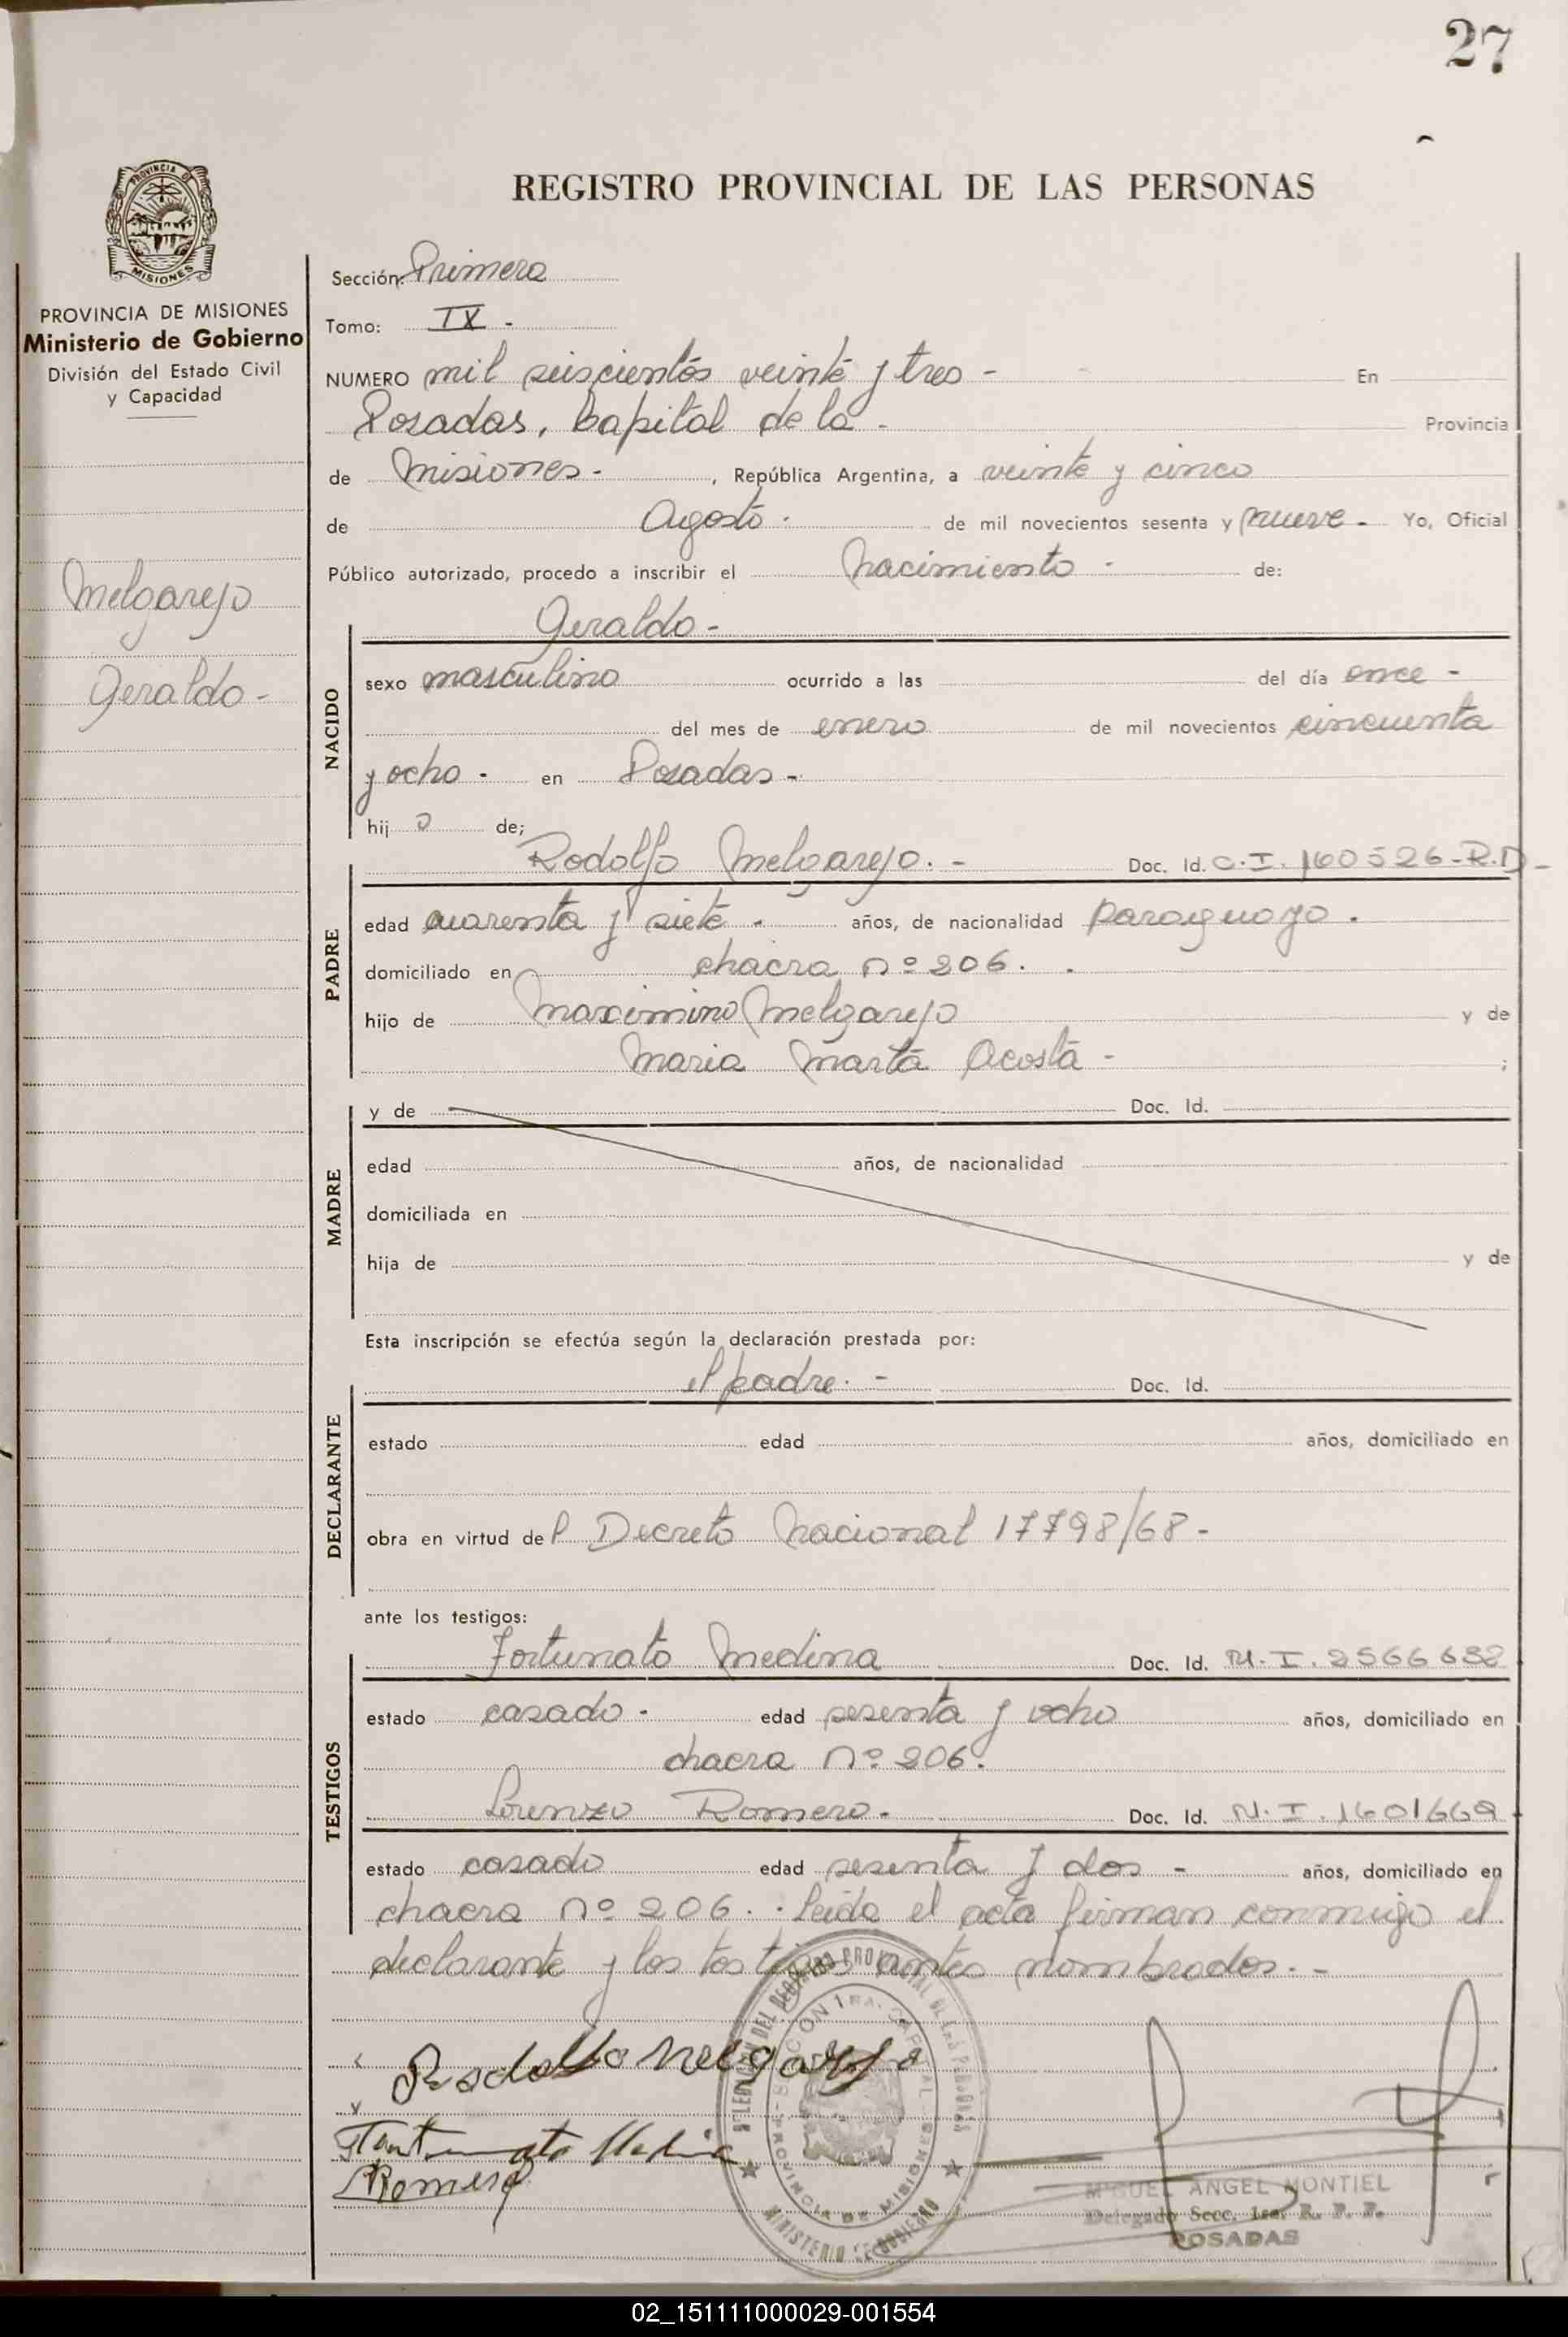 27
REGISTRO PROVINCIAL DE LAS PERSONAS
PROVINCIA DE MISIONES
Ministerio de Gobierno
División del Estado Civil
y Capacidad
Melgarejo
Geraldo-
Sección: Primera
Tomo: IX -
NUMERO mil seiscientos veinte y tres - En
Posadas, Capital de la - Provincia
de Misiones - , República Argentina, a veinte y cinco
de Agosto - de mil novecientos sesenta y nueve - Yo, Oficial
Público autorizado, procedo a inscribir el Nacimiento - de:
Geraldo -
NACIDO
sexo masculino ocurrido a las del día once -
del mes de enero de mil novecientos cincuenta
y ocho - en Posadas -
hij o de;
Rodolfo Melgarejo. - Doc. Id. C.I. 160526-R.D-
PADRE
edad cuarenta y siete - años, de nacionalidad paraguayo .
domiciliado en chacra nº 206. .
hijo de Maximino Melgarejo y de
Maria Marta Acosta - ;
MADRE
y de Doc. Id.
edad años, de nacionalidad
domiciliada en
hija de y de
Esta inscripción se efectúa según la declaración prestada por:
el padre. - Doc. Id.
DECLARANTE
estado edad años, domiciliado en
obra en virtud del Decreto Nacional 17798/68 -
ante los testigos:
Fortunato Medina Doc. Id. M.I. 2566632
TESTIGOS
estado casado - edad sesenta y ocho años, domiciliado en
chacra nº 206.
Lorenzo Romero - Doc. Id. M.I. 1601669
estado casado edad sesenta y dos - años, domiciliado en
chacra nº 206. . Leida el acta firman conmigo el
declarante y los testigos antes nombrados. -
Rodolfo Melgarejo
Fortunato Medina
Romero
SECCION 1RA. CAPITAL
PROVINCIA DE MISIONES
MINISTERIO DE GOBIERNO
MIGUEL ANGEL MONTIEL
Delegado Secc. 1ra. R. P. P.
POSADAS
02_151111000029-001554